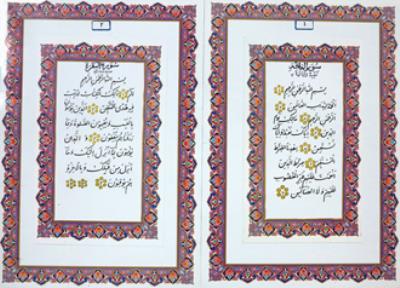 ١
سورة الفاتحة
بسم الله الرحمن الرحيم
الحمد لله رب العالمين
الرحمن الرحيم ملك يوم
الدين إياك نعبد وإياك
نستعين اهدنا الصراط
المستقيم صراط الذين
أنعمت عليهم غير المغضوب
عليهم ولا الضالين
٢
سورة البقرة
بسم الله الرحمن الرحيم
الم ذلك الكتب لا ريب
فيه هدى للمتقين الذين يؤمنون
بالغيب ويقيمون الصلوة ومما
رزقنهم ينفقون والذين
يؤمنون بما أنزل إليك وما
أنزل من قبلك وبالآخرة
هم يوقنون